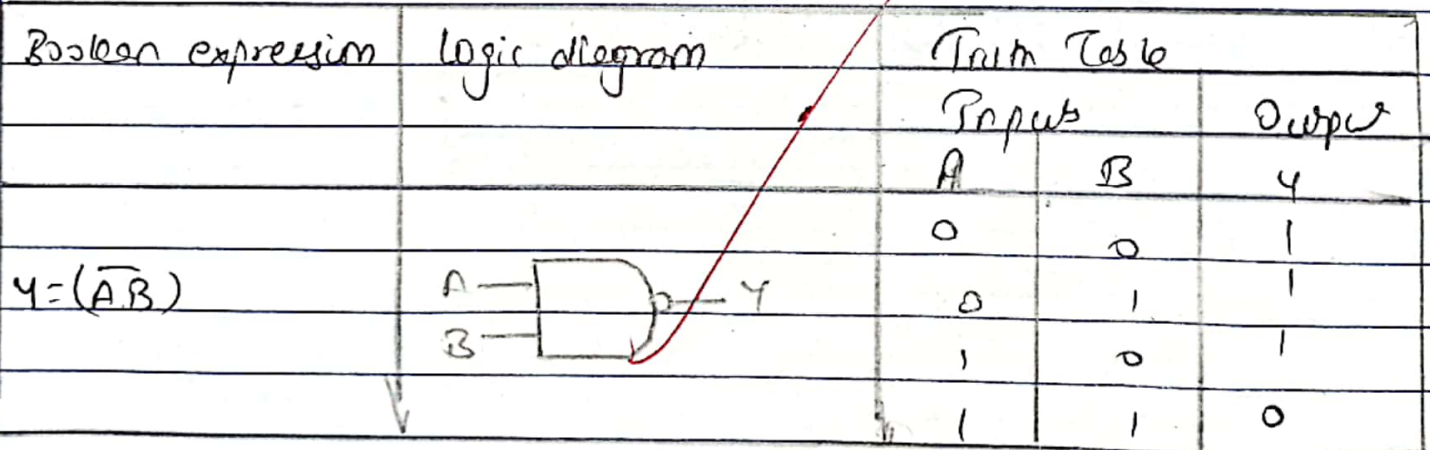 Boolean expression logic diagram Truth Table
Inputs Output
A B Y
0 0 1
Y=(A̅B̅) A Y 0 1 1
B 1 0 1
1 1 0